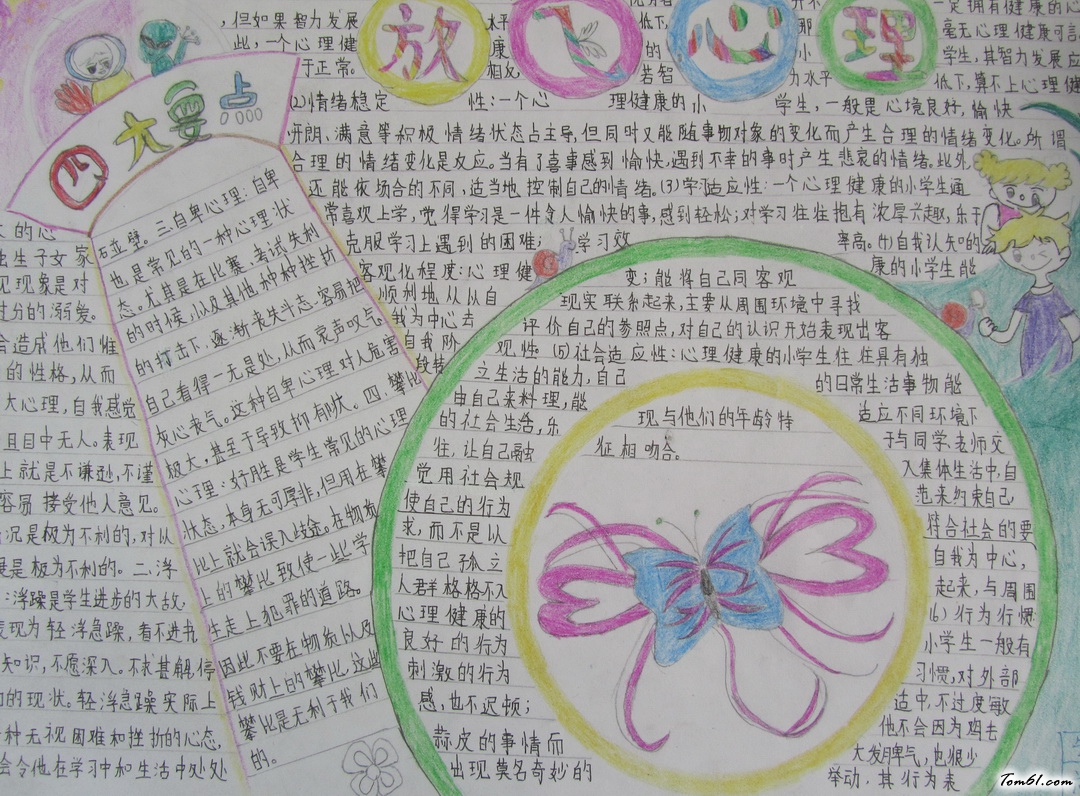 放飞心理
四大要点
,但如果智力发展
水平
此,一个心理健
康
于正常。
相仪
低下,
的
若智
那
小
力水平
一定拥有健康的心
毫无心理健康可言
学生,其智力发展应
低下,算不上心理健
(2)情绪稳定性:一个心理健康的小学生,一般是心境良好,愉快
开朗、满意等积极情绪状态占主导,但同时又能随事物对象的变化而产生合理的情绪变化。所谓
合理的情绪变化是反应。当有了喜事感到愉快,遇到不幸的事时产生悲哀的情绪。此外
还能依场合的不同,适当地控制自己的情绪。(3)学习适应性:一个心理健康的小学生通
常喜欢上学,觉得学习是一件令人愉快的事,感到轻松;对学习往往抱有浓厚兴趣,乐于
克服学习上遇到的困难;学习效率高。(4)自我认知的
客观化程度:心理健康的小学生能
顺利地从从自
我为中心去
自我阶
段转
变;能将自己同客观
现实联系起来,主要从周围环境中寻找
评价自己的参照点,对自己的认识开始表现出客
观性。(5)社会适应性:心理健康的小学生往往具有独
立生活的能力,自己的日常生活事物能
由自己来料理,能现与他们的年龄特适应不同环境下
的社会生活,乐征相吻合。于与同学老师交
往,让自己融入集体生活中,自
觉用社会规范来约束自己
使自己的行为符合社会的要
求,而不是以自我为中心,
把自己孤立起来,与周围
人群格格不入(6)行为行惯
心理健康的小学生一般有
良好的行为习惯,对外部
刺激的行为适中,不过度敏
感,也不迟顿;他不会因为鸡去
蒜皮的事情而大发脾气,也很少
出现莫名奇妙的举动.其行为表
三自卑心理:自卑
也是常见的一种心理状
态。尤其是在比赛、考试失利
的时候,以及其他种种挫折
的打击下,逐渐丧失斗志.容易把
自己看得一无是处,从而哀声叹气
灰心丧气。这种自卑心理对人危害
极大,甚至于导致抑郁状。四.攀比
心理:好胜是学生常见的心理
状态,本身无可厚非,但用在攀
比上就会误入歧途。在物质
上的攀比致使一些学
生走上犯罪的道路。
因此不要在物质以及
钱财上的攀比,这些
攀比是无利于我们
的。
大的心
独生子女家
见现象是对
过分的溺爱。
会造成他们惟
的性格,从而
大心理,自我感觉
且目中无人。表现
上就是不谦逊,不谨
容易接受他人意见。
况是极为不利的,对从
展是极为不利的。二.浮
:浮躁是学生进步的大敌,
表现为轻浮急躁,看不进书
知识,不愿深入。不求甚解,停
的现状。轻浮急躁实际上
种无视困难和挫折的心态,
会令他在学习中和生活中处处
Tom61.com